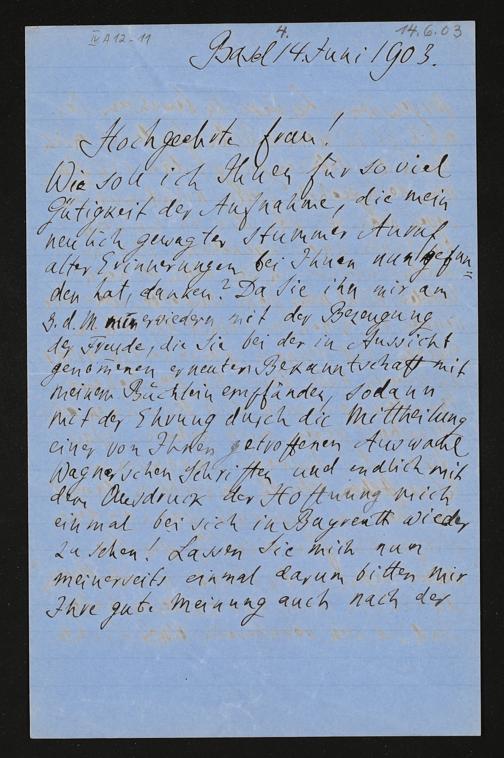 IV A 12-11
4.
14.6.03
Basel 14. Juni 1903.
Hochgeehrte Frau!
Wie soll ich Ihnen für so viel
Gütigkeit der Aufnahme, die mein
neulich gewagter stummer Anruf
alter Erinnerungen bei Ihnen nun gefun=
den hat, danken? Da Sie ihn mir am
3. d. M. erwiedern mit der Bezeugung
der Freude, die Sie bei der in Aussicht
genom̅enen erneuten Bekanntschaft mit
meinem Büchlein empfänden, sodann
mit der Ehrung durch die Mittheilung
einer von Ihnen getroffenen Auswahl
Wagnerschen Schriften und endlich mit
dem Ausdruck der Hoffnung mich
einmal bei sich in Bayreuth wieder
zu sehen! Lassen Sie mich nun
meinerseits einmal darum bitten mir
Ihre gute Meinung auch nach der